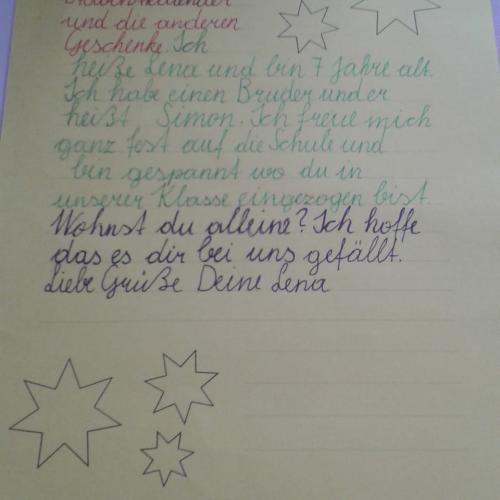 und die anderen
Geschenke. Ich
heiße Lena und bin 7 Jahre alt.
Ich habe einen Bruder und er
heißt Simon. Ich freue mich
ganz fest auf die Schule und
bin gespannt wo du in
unserer Klasse eingezogen bist.
Wohnst du alleine? Ich hoffe
das es dir bei uns gefällt.
Liebe Grüße Deine Lena